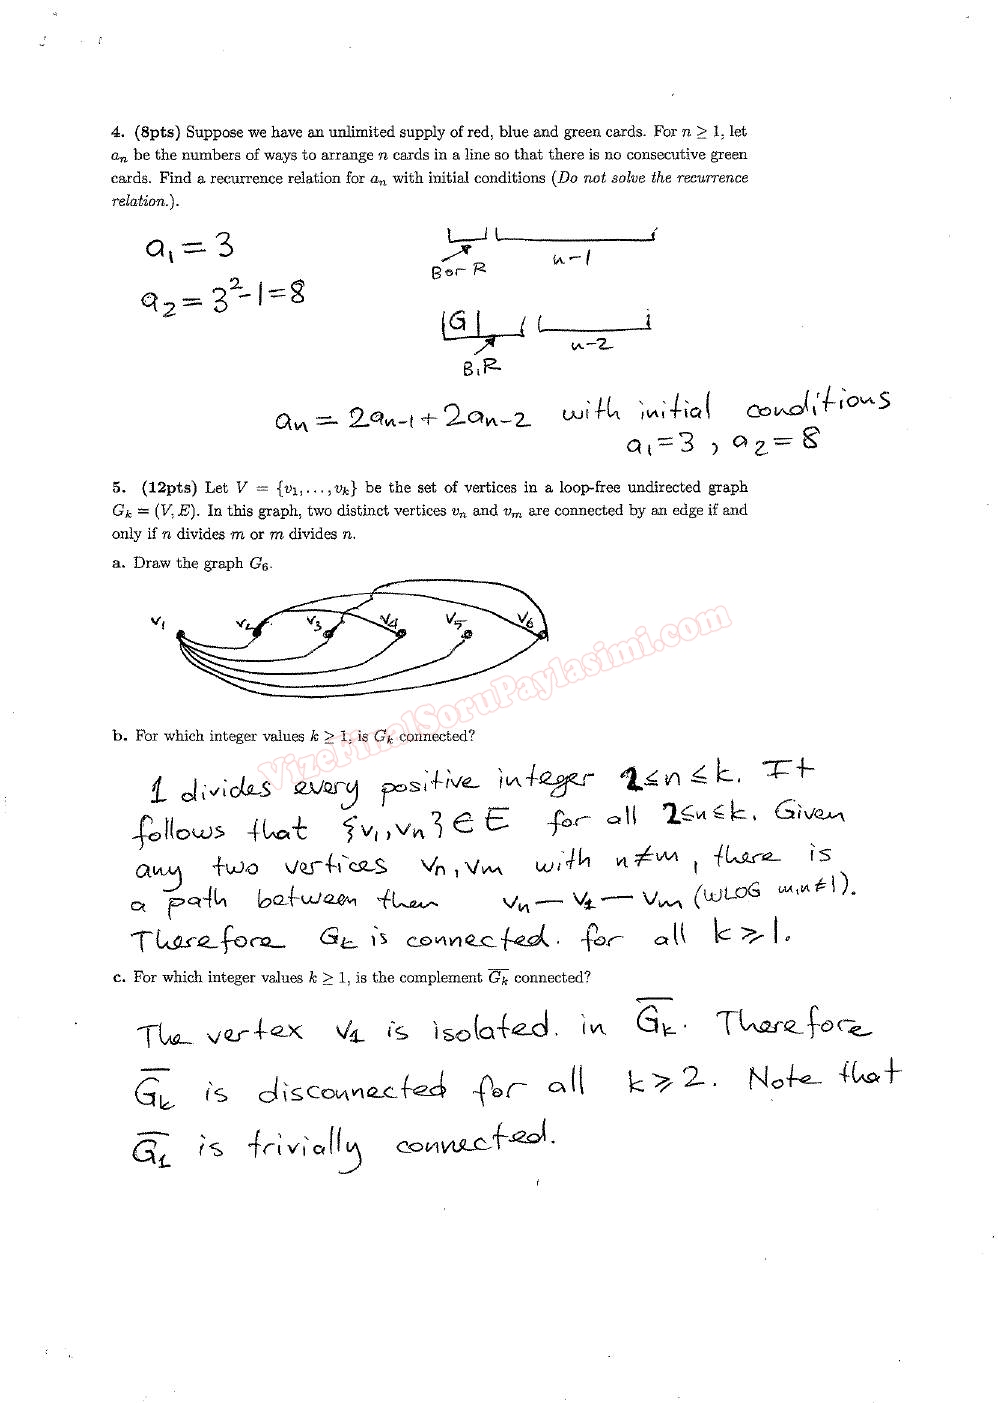 4. (8pts) Suppose we have an unlimited supply of red, blue and green cards. For n ≥ 1, let
aₙ be the numbers of ways to arrange n cards in a line so that there is no consecutive green
cards. Find a recurrence relation for aₙ with initial conditions (Do not solve the recurrence
relation.).
a₁ = 3
a₂ = 3² - 1 = 8
B or R
n-1
G
B,R
n-2
aₙ = 2aₙ₋₁ + 2aₙ₋₂ with initial conditions
a₁ = 3, a₂ = 8
5. (12pts) Let V = {v₁, . . . , vₖ} be the set of vertices in a loop-free undirected graph
Gₖ = (V, E). In this graph, two distinct vertices vₙ and vₘ are connected by an edge if and
only if n divides m or m divides n.
a. Draw the graph G₆.
V₁ V₂ V₃ V₄ V₅ V₆
VizeFinalSoruPaylasimi.com
b. For which integer values k ≥ 1, is Gₖ connected?
1 divides every positive integer 2≤n≤k. It
follows that {v₁,vₙ} ∈ E for all 2≤n≤k. Given
any two vertices vₙ, vₘ with n≠m, there is
a path between then vₙ — v₁ — vₘ (WLOG m,n≠1).
Therefore Gₖ is connected. for all k ≥ 1.
c. For which integer values k ≥ 1, is the complement G̅ₖ connected?
The vertex v₁ is isolated. in G̅ₖ. Therefore
G̅ₖ is disconnected for all k ≥ 2. Note that
G̅₁ is trivially connected.